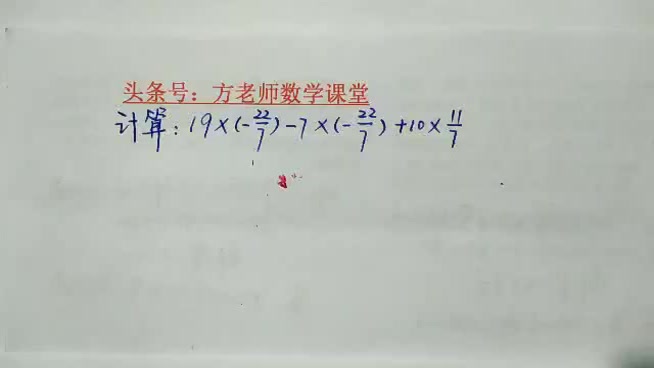 头条号：方老师数学课堂
计算：19×(-22/7)-7×(-22/7)+10×11/7